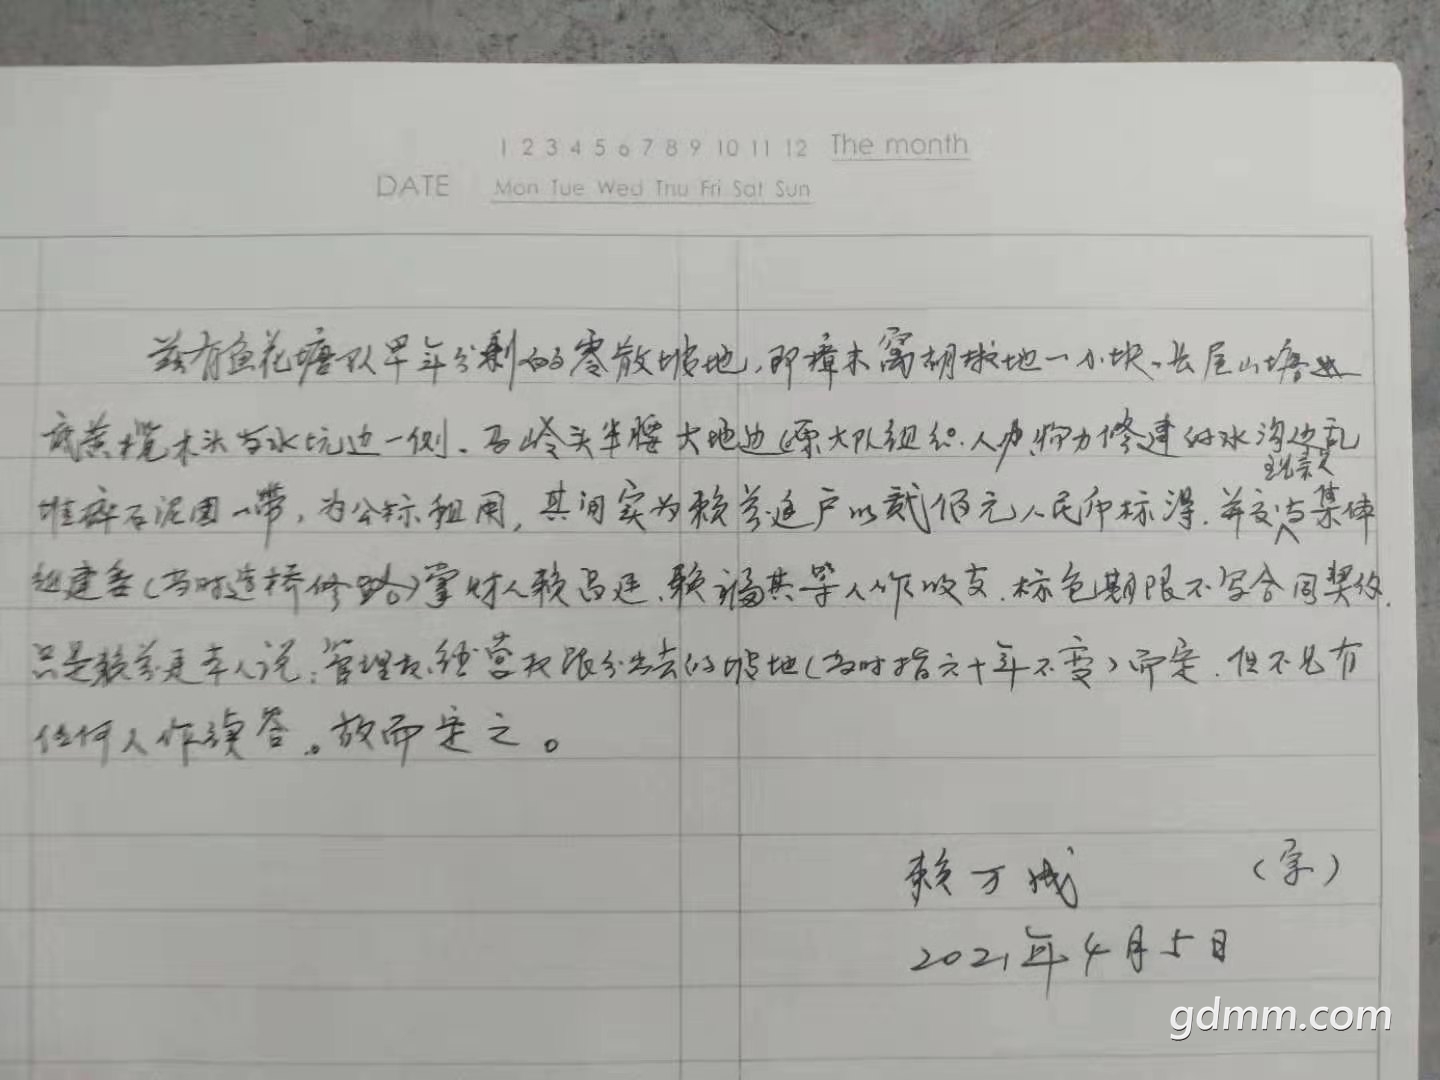 1 2 3 4 5 6 7 8 9 10 11 12 The month
DATE Mon Tue Wed Thu Fri Sat Sun
兹有鱼花塘队早年分剩的零散坡地，即樟木窩胡椒地一小块、长尾山塘
底黄榄木头与水坑边一侧、石岭头半腰大地边(原大队组织人力修建的水沟边乱
现款
堆碎石泥团一带，为公标租用，其间实为赖芬廷户以贰佰元人民币标得，并交与集体
组建委(当时造桥修路)掌财人赖昌廷、赖福其等人作收支，标包期限不写合同契约，
只是赖芬廷本人说：管理权经营权跟分出去的坡地(当时指六十年不变)而定，但不见有
任何人作续答。故而定之。
赖万成 (字)
2021年4月5日
gdmm.com